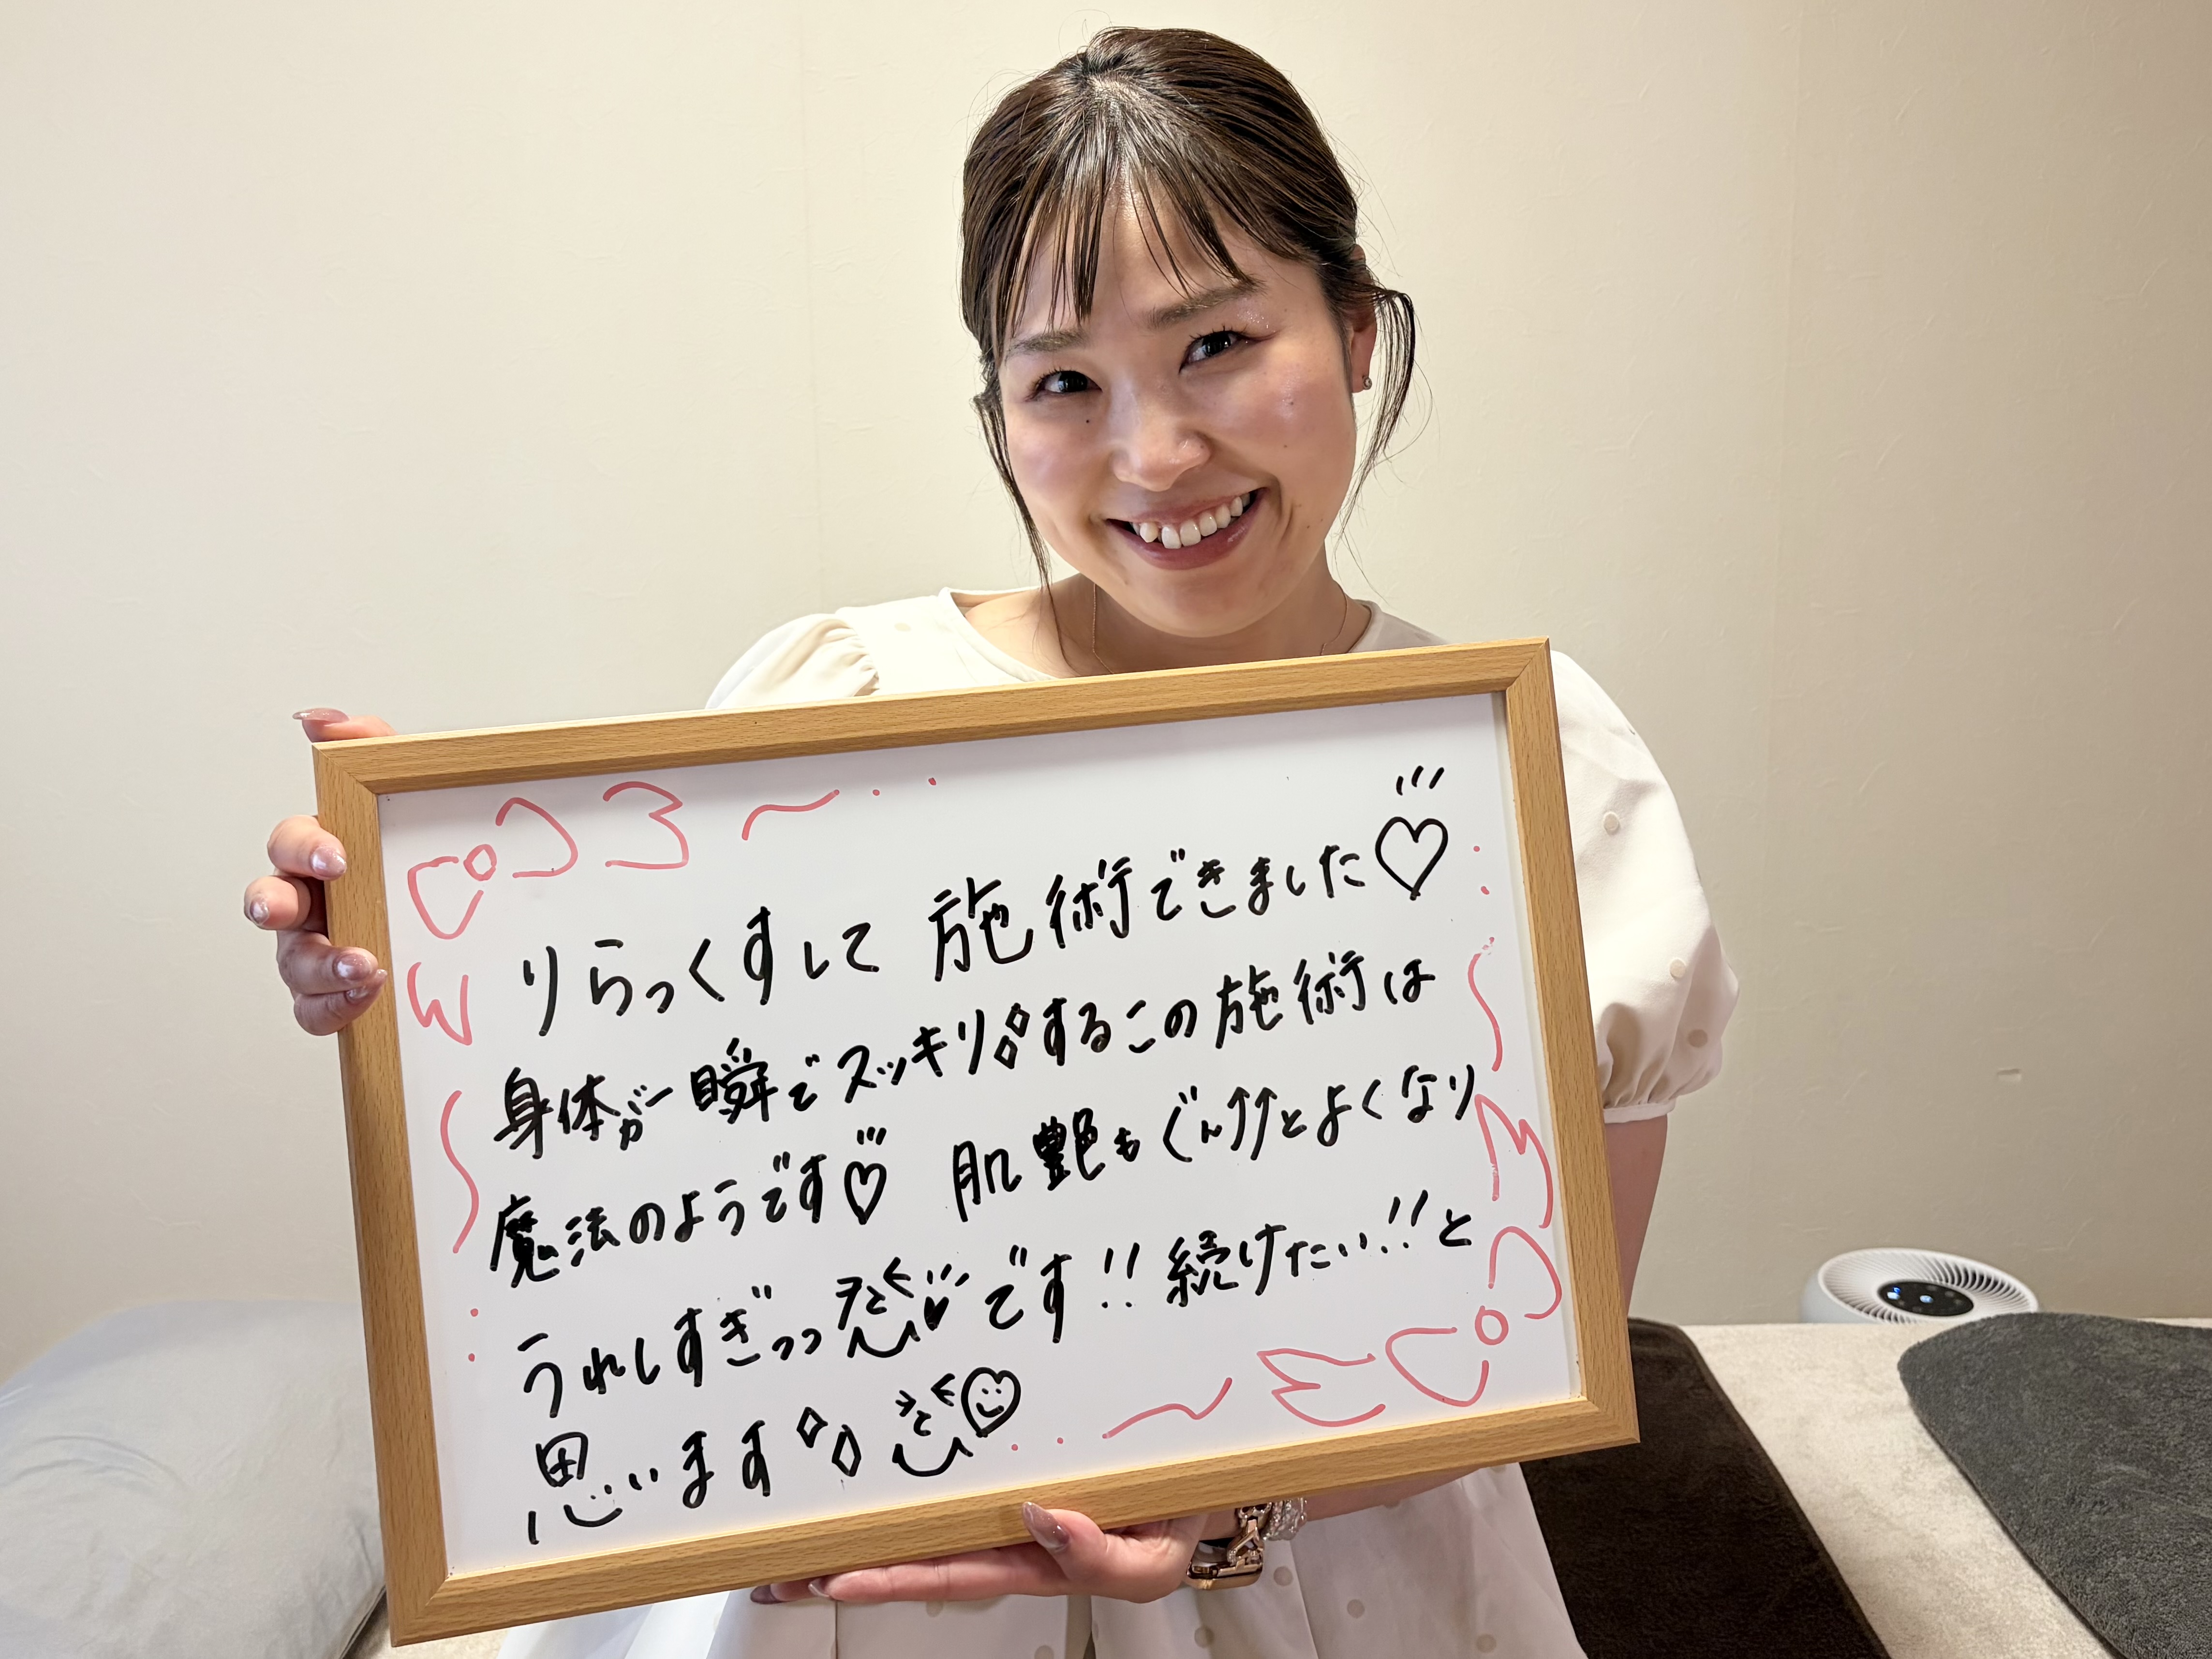 りらっくすして 施術できました♡
身体が一瞬でスッキリするこの施術は
魔法のようです♡ 肌艶もぐん↑↑とよくなり
うれしすぎっっです!!続けたい!!と
思います